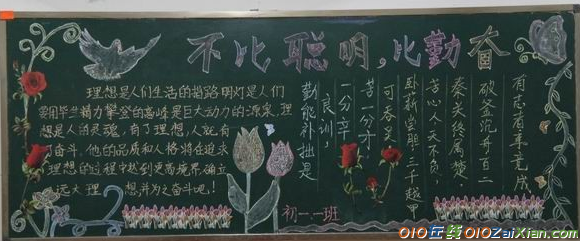 不比聪明,比勤奋
理想是人们生活的指路明灯是人们
要用毕生精力攀登的高峰是巨大动力的源泉,理
想是人的灵魂,有了理想,人就有
了奋斗,他的品质和人格将在追求
理想的过程中达到更高境界确立
远大理想,并为之奋斗吧!
有志者事竟成,
破釜沉舟百二
秦关终属楚.
苦心人天不负,
卧薪尝胆三千越甲
可吞吴.
一分辛
苦一分才
良训,
勤能补拙是
初一.一班
010在线>010ZaiXian.com